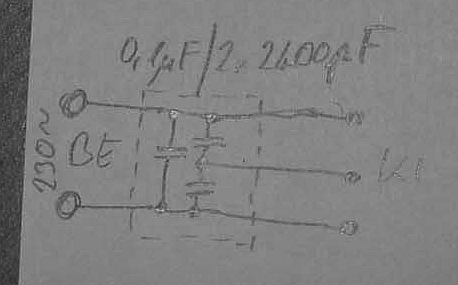 0,1µF/2x2400pF
230~
BE
KI